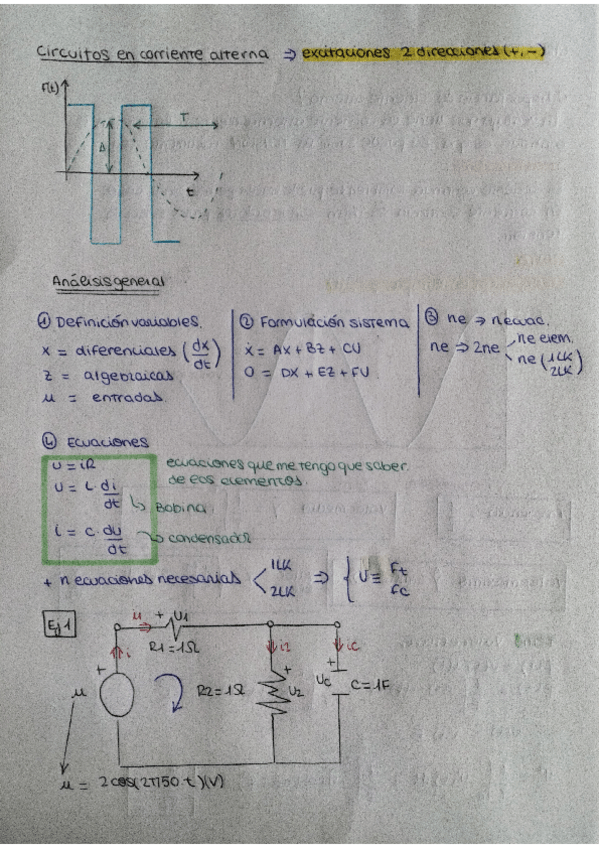 Circuitos en corriente alterna ⇒ excitaciones 2 direcciones (+, -)
F(t)
T
A
t
Análisis general
① Definición variables.
x = diferenciales (dx/dt)
z = algebraicas
u = entradas
② Formulación sistema
ẋ = Ax + Bz + CU
0 = Dx + Ez + FU
③ ne ⇒ necuac.
ne ⇒ 2ne < ne elem.
ne (1LK
2LK)
④ Ecuaciones
U = iR
U = L · di/dt ↳ Bobina
i = C · du/dt ↳ condensador
ecuaciones que me tengo que saber
de los elementos.
+ n ecuaciones necesarias < 1LK
2LK ⇒ { U ≡ Ft
Fc
Ej 1
+ U1
R1 = 1Ω
i
i2
ic
+
u
R2 = 1Ω
+
U2
+
Uc
C = 1F
u = 2cos(2π50t)(V)